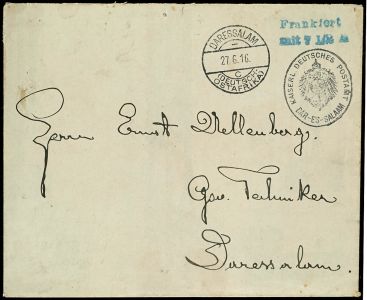 Frankiert
mit 7 1/2 H
DARESSALAM
27.6.16.
C
(DEUTSCH-
OSTAFRIKA)
KAISERL. DEUTSCHES POSTAMT
DAR-ES-SALAAM
Herrn Ernst Wellenberg.
Gov. Techniker
Daressalam.